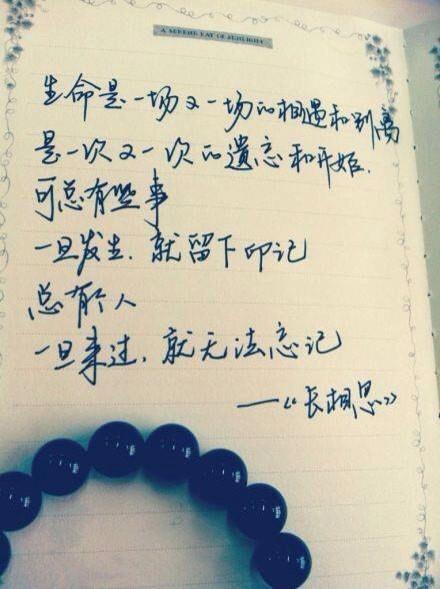 A SERENE RAY OF SUNLIGHT
生命是一场又一场的相遇和别离
是一次又一次的遗忘和开始.
可总有些事
一旦发生.就留下印记
总有个人
一旦来过,就无法忘记
—《长相思》